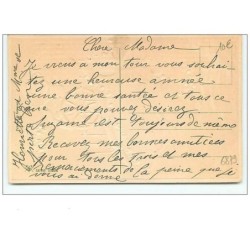 Chère Madame
Je viens à mon tour vous souhai
tez une heureuse année
une bonne santée et tous ce
que vous pouvez désirez
est toujours de même
Recevez mes bonnes amitiées
pour tous les trois et mes
remerciements de la peine que je
vous ai donné